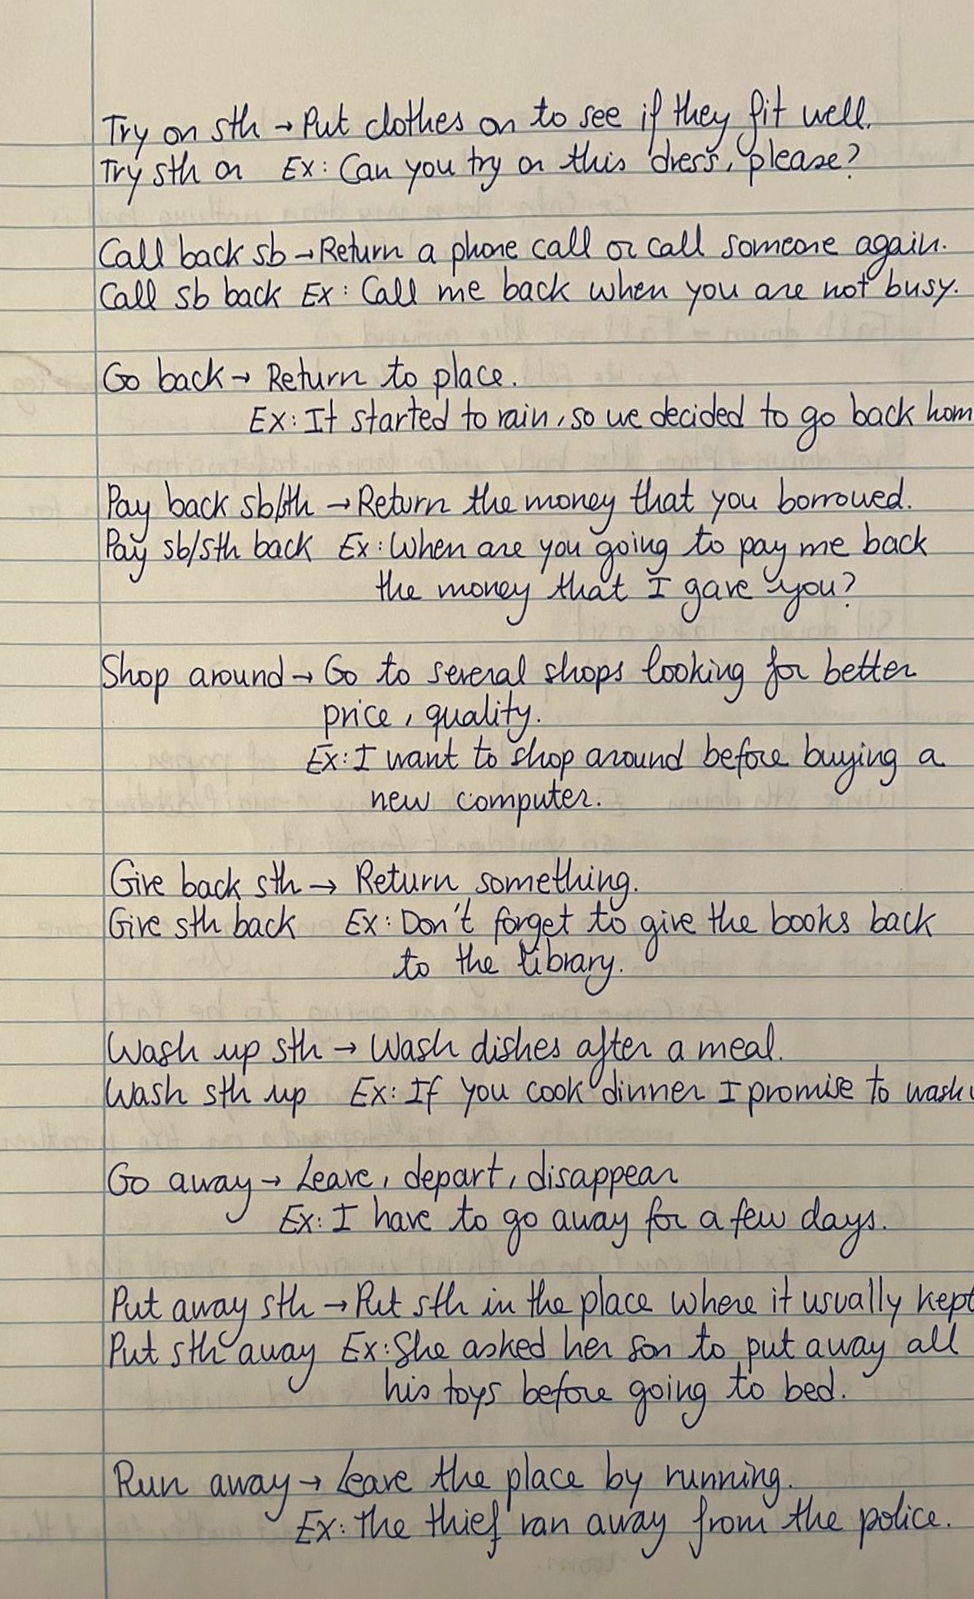 Try on sth → Put clothes on to see if they fit well.
Try sth on Ex: Can you try on this dress, please?
Call back sb → Return a phone call or call someone again.
Call sb back Ex: Call me back when you are not busy.
Go back → Return to place.
Ex: It started to rain, so we decided to go back hom
Pay back sb/sth → Return the money that you borrowed.
Pay sb/sth back Ex: When are you going to pay me back
the money that I gave you?
Shop around → Go to several shops looking for better
price, quality.
Ex: I want to shop around before buying a
new computer.
Give back sth → Return something.
Give sth back Ex: Don't forget to give the books back
to the library.
Wash up sth → Wash dishes after a meal.
Wash sth up Ex: If you cook dinner I promise to wash
Go away → Leave, depart, disappear
Ex: I have to go away for a few days.
Put away sth → Put sth in the place where it usually kept
Put sth away Ex: She asked her son to put away all
his toys before going to bed.
Run away → Leave the place by running.
Ex: The thief ran away from the police.